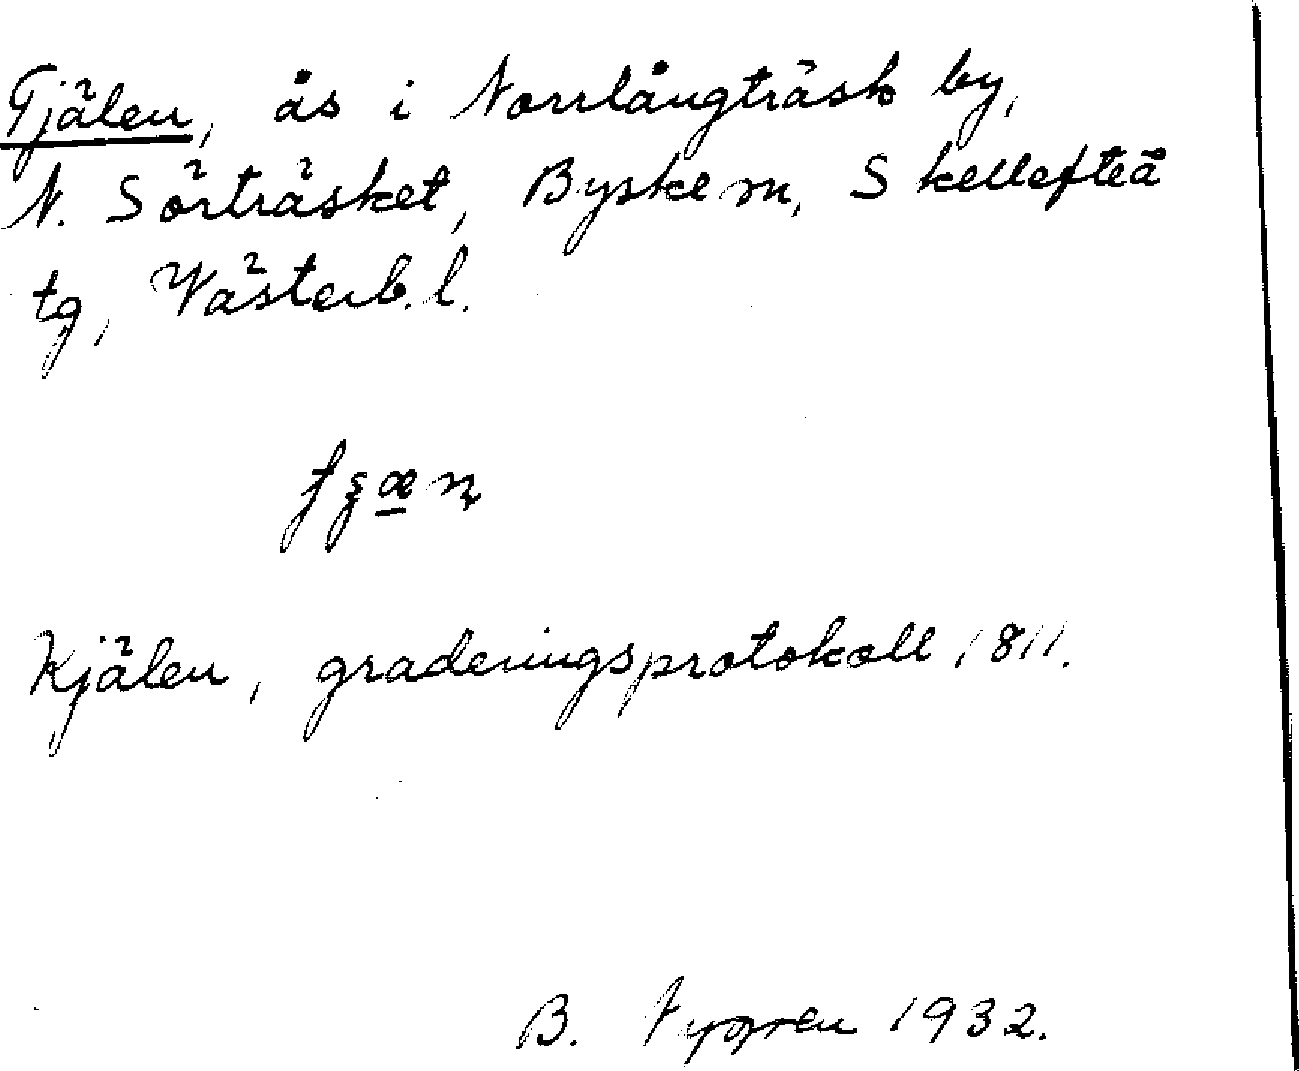 Tjälen, ås i Norrlångträsk by,
N. Sörträsket, Byske sn, Skellefteå
tg, Västerb. l.
Kjälen, graderingsprotokoll 1811.
B. Nygren 1932.